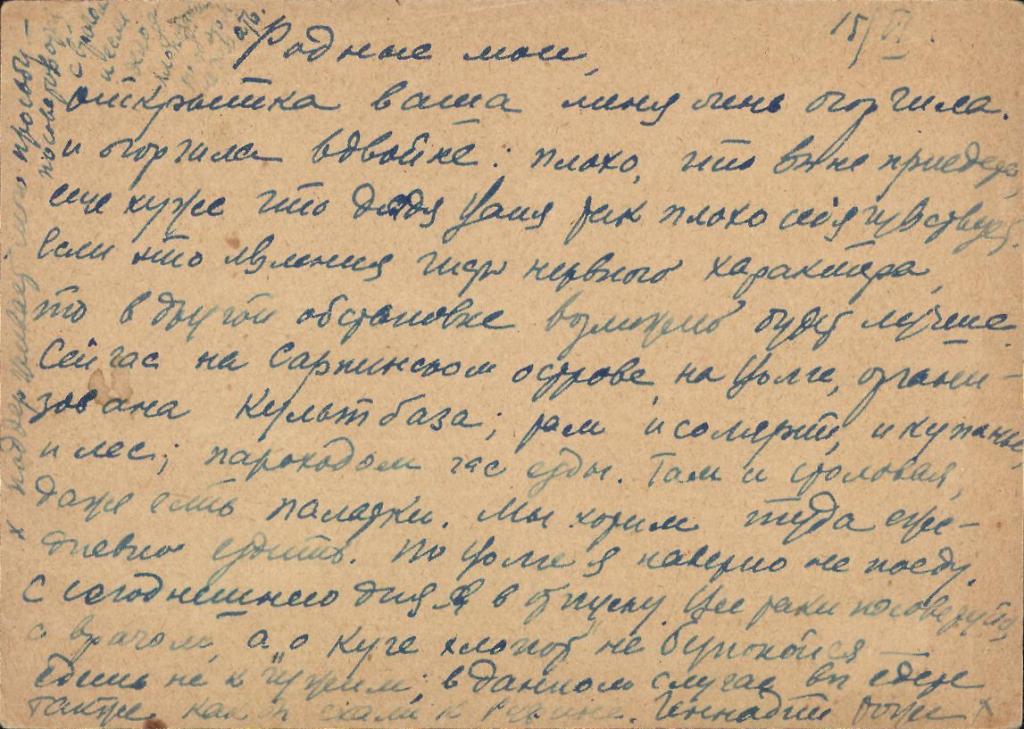 15/VI.
Родные мои,
открытка ваша меня очень огорчила.
и огорчила вдвойне: плохо, что вы не приедете,
еще хуже что дядя Ваня так плохо себя чувствует.
Если это явления чисто нервного характера,
то в другой обстановке возможно будет лучше.
Сейчас на Сарпинском острове, на Волге, органи-
зована культбаза; там и солярий, и купанье,
и лес; пароходом час езды. Там и столовая,
даже есть палатки. Мы хотим туда еже-
дневно ездить. По Волге я наверно не поеду.
С сегодняшнего дня я в отпуску. Все таки посоветуйтесь
с врачом, а о куче хлопот не беспокойся
едешь не к чужим; в данном случае вы едете
также как и ехали к . Геннадий тоже x
x поддерживает мою просьбу -
посоветоваться
с врачом
и если